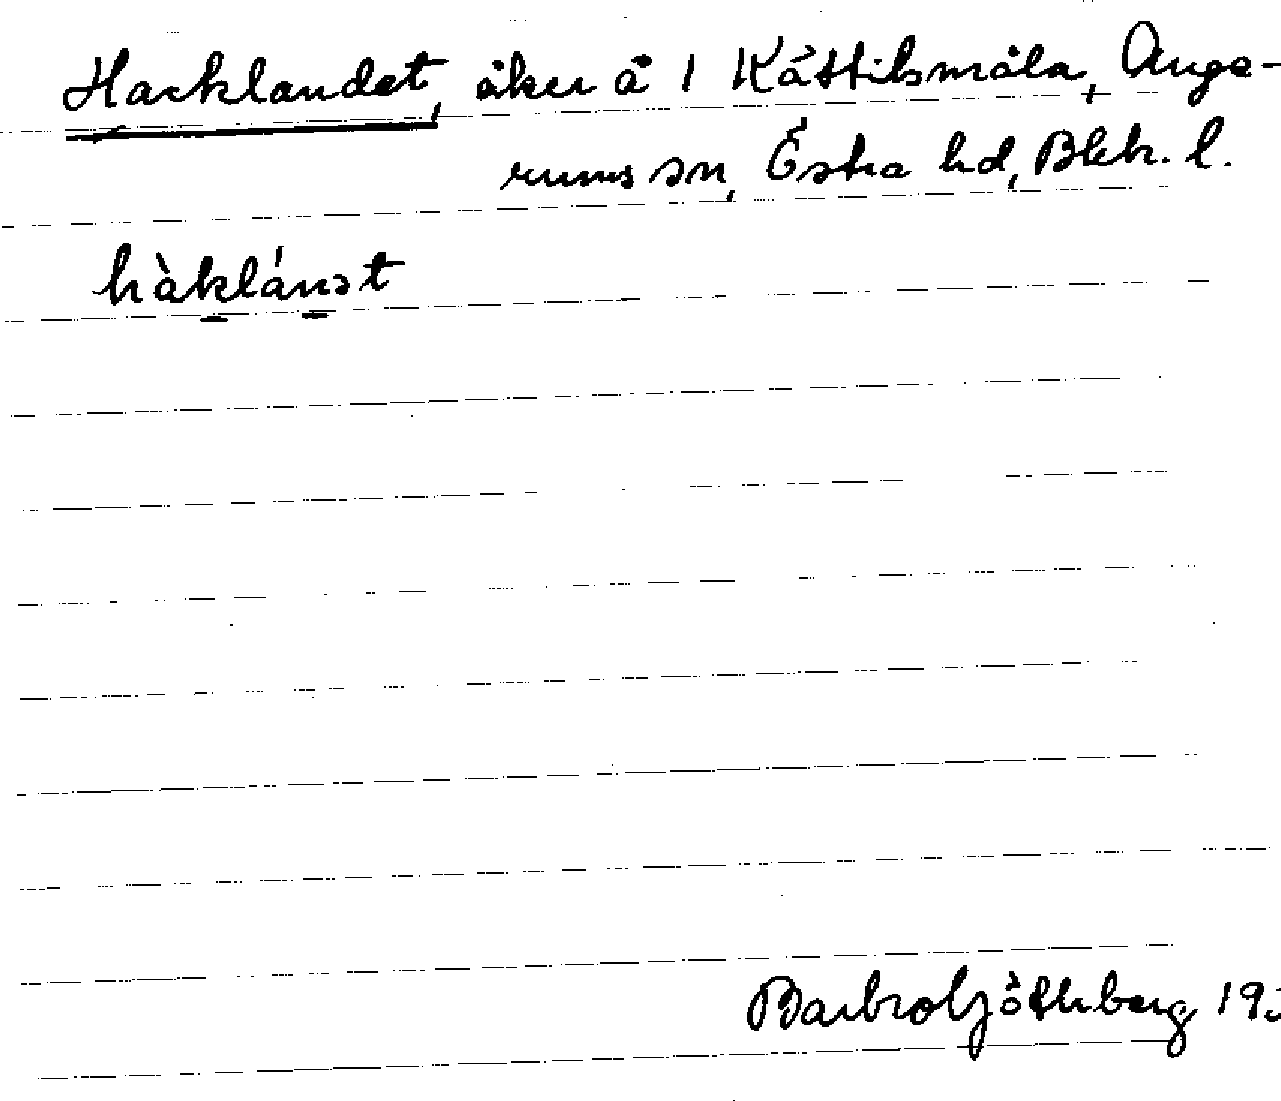 Hacklandet, åker å 1 Kättilsmåla, Auge-
rums sn, Östra hd, Blek. l.
hàklánət
Barbro Göthberg 19